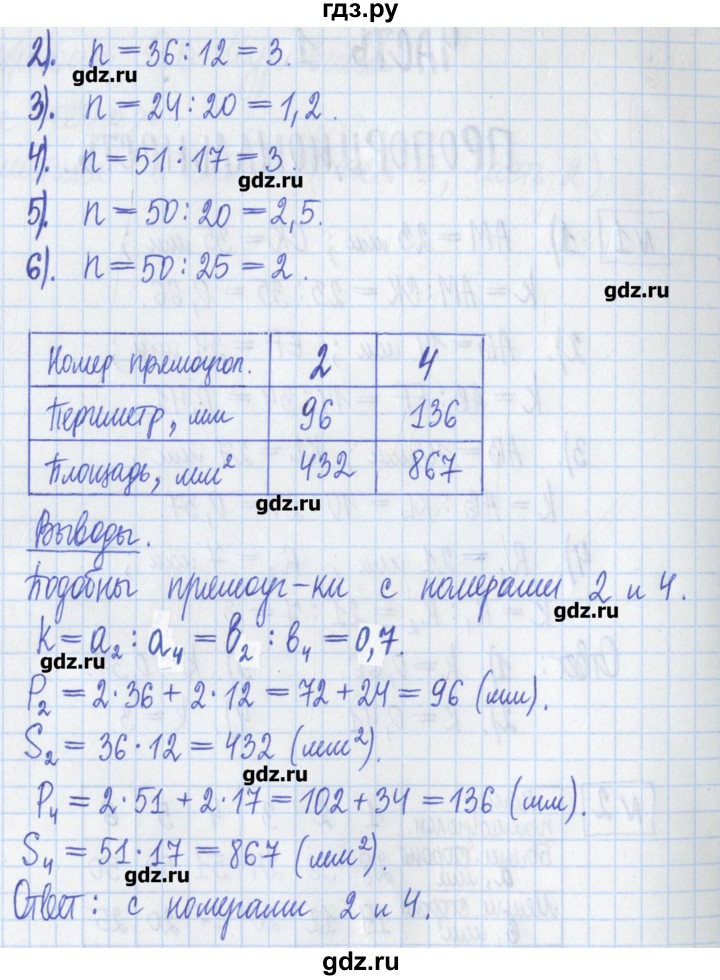 гдз.ру
2). n = 36 : 12 = 3.
gdz.ru
3). n = 24 : 20 = 1,2.
4). n = 51 : 17 = 3
gdz.ru
5). n = 50 : 20 = 2,5.
6). n = 50 : 25 = 2.
gdz.ru
Номер прямоугол. 2 4
Периметр, мм 96 136
Площадь, мм² 432 867
gdz.ru
Выводы.
Подобны прямоуг-ки с номерами 2 и 4.
gdz.ru
k = a₂ : a₄ = b₂ : b₄ = 0,7.
gdz.ru
P₂ = 2·36 + 2·12 = 72 + 24 = 96 (мм).
S₂ = 36·12 = 432 (мм²).
gdz.ru
P₄ = 2·51 + 2·17 = 102 + 34 = 136 (мм).
S₄ = 51·17 = 867 (мм²).
gdz.ru
Ответ: с номерами 2 и 4.
gdz.ru